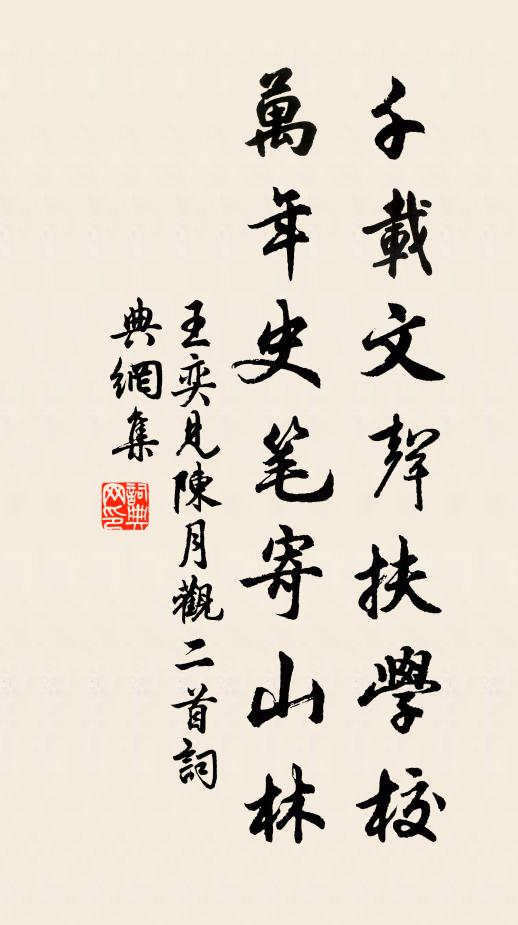 千載文聲扶學校
萬年史笔寄山林
王奕見陳月觀二首詞
典網集
詞典
网印